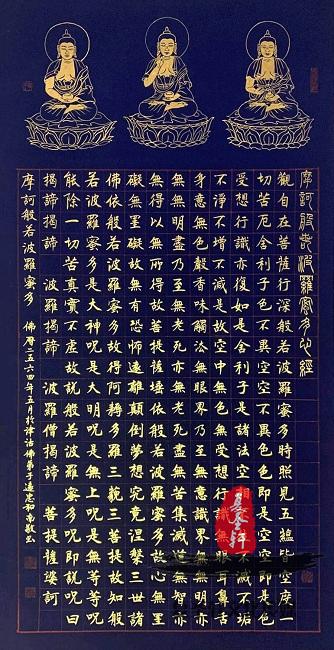 摩訶般若波羅蜜多心經
觀自在菩薩行深般若波羅蜜多時照見五蘊皆空度一
切苦厄舍利子色不異空空不異色色即是空空即是色
受想行識亦復如是舍利子是諸法空相不滅不垢
不淨不增不減是故空中無色無受想行識無眼耳鼻舌
身意無色聲香味觸法無眼界乃至無意識界無無明亦
無無明盡乃至無老死亦無老死盡無苦集滅道無智亦
無得以無所得故菩提薩埵依般若波羅蜜多故心無罣
礙無罣礙故無有恐怖遠離顛倒夢想究竟涅槃三世諸
佛依般若波羅蜜多故得阿耨多羅三藐三菩提故知般
若波羅蜜多是大神咒是大明咒是無上咒是無等等咒
能除一切苦真實不虛故說般若波羅蜜多咒即說咒曰
揭諦揭諦 波羅揭諦 波羅僧揭諦 菩提薩埵訶
摩訶般若波羅蜜多 佛曆二五六四年五月於津沽佛弟子通忠和南敬書